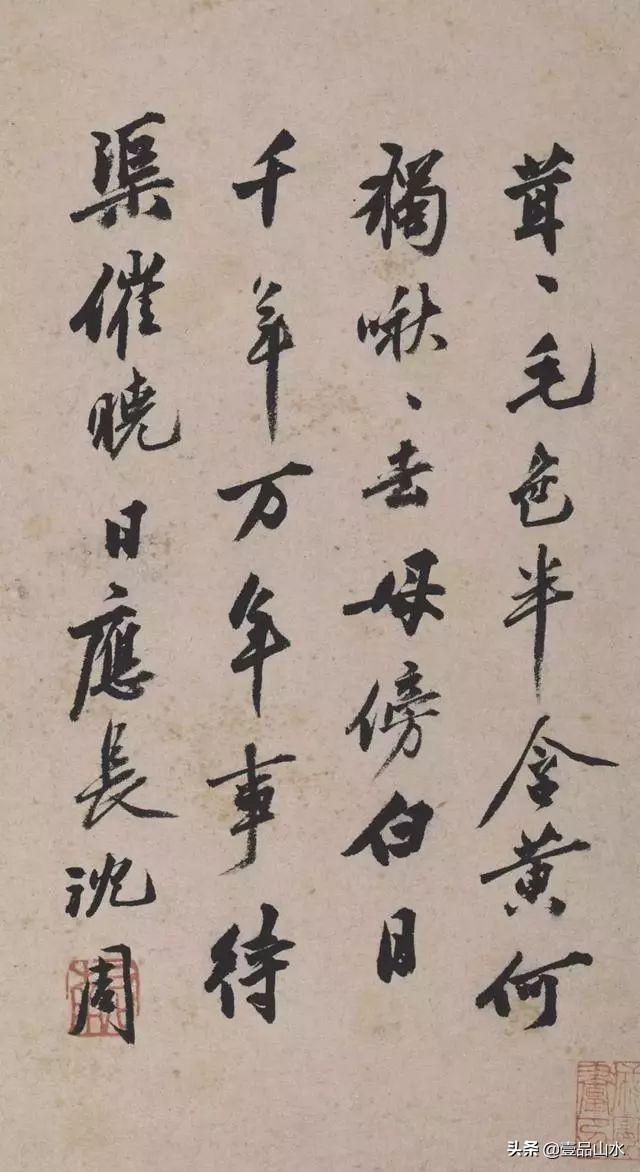 茸、毛色半含黄何
獨啾、去母傍白日
千年万年事待
渠催曉日應長沈周
头条 @壹品山水